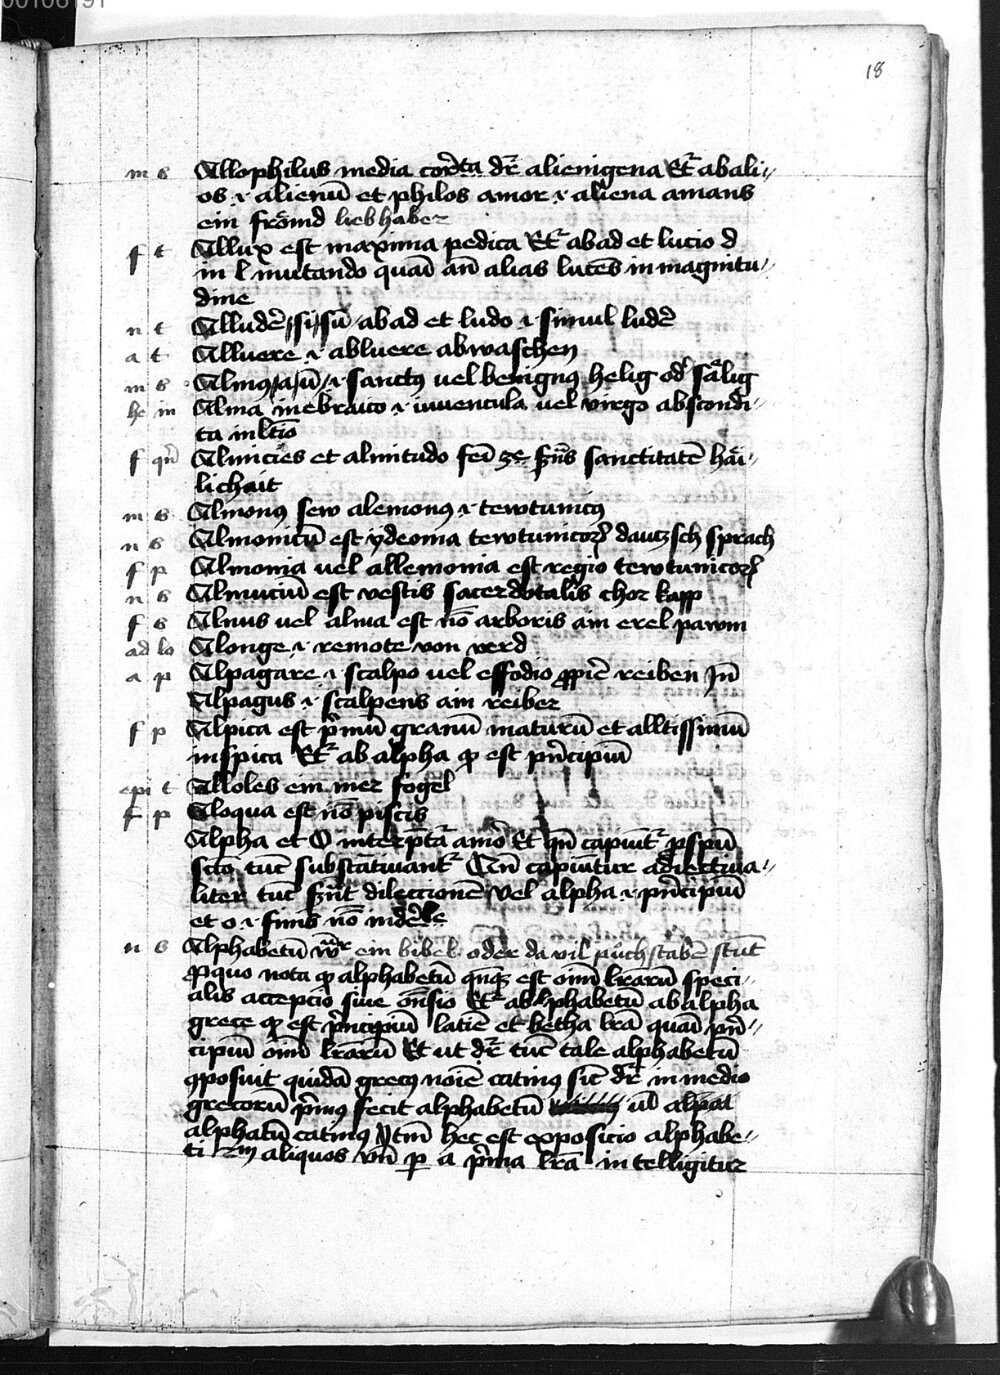 00106191
18
m s Allophilus media cor̄ta dr̄ alienigena Et̄ ab ali //
os .i. alienū et philos amor .i. aliena amans
ein frömd liebhaber
f t Allux est maxima pedica Et̄ ab ad et lucio d
in l mutando quasi an̄ alias lucēs in magnitu //
dine
n t Alludē /si/sū/ ab ad et ludo .i. simul ludē
a t Alluere .i. abluere abwaschen
m s Almus/a/ū/ .i. sanctus vel benignus helig od̄ sälig
he in Alma in ebraico .i. iuvencula vel virgo abscondi //
ta in
f Almicies et almitudo sanctitatē häi //
lichait
m s Almonus sew alemonus .i. tewtunicus
n s Almonicū est ydeoma tewtunicoꝝ dautzsch sprach
f p Almonia vel allemonia est regio tewtunicoꝝ
n s Almuciū est vestis sacerdotalis chor kapp
f s Alnus vel alma est nō arboris ain erel pawm
ad lo Alonge .i. remote von verd
a p Alpagare .i. scalpo vel effodio ꝓpiē reiben In̄
Alpagus .i. scalpens ain reiber
f p Alpica est p̄mū granū maturū et alltissimū
in spica Et̄ ab alpha qꝫ est pn̄cipiū
epi t Alloles ein mer fogel
f p Aloqua est nō piscis
Alpha et O interp̄ta amō Et qn̄ capiūt̄
sctō tūc substātivant̄ Qn̄ capiūtur adiectiva //
liter tūc dilectionē vel alpha .i. pn̄cipiū
et o .i. finis nō
n s Alphabetū ein bibel oder da vil půchstabē stūt
nota qꝫ alphabetū est oīm lrārū speci //
alis accepcio sive Et̄ alphabetū ab alpha
grece qꝫ est pn̄cipiū latiē et betha lrā quasi pn̄ //
cipiū oīm lrārū Et ut dr̄ tūc tale alphabetū
ꝯposuit quidā grecus noīe catinus sic̄ dr̄ in medio
grecorū p̄mus fecit alphabetū
alphatū catinus hec est exposicio alphabe //
ti aliquos p̄ a p̄ma lrā intelligitur